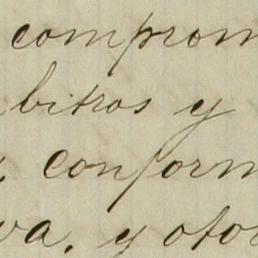 comprom
bitros y
conform
va. y otor